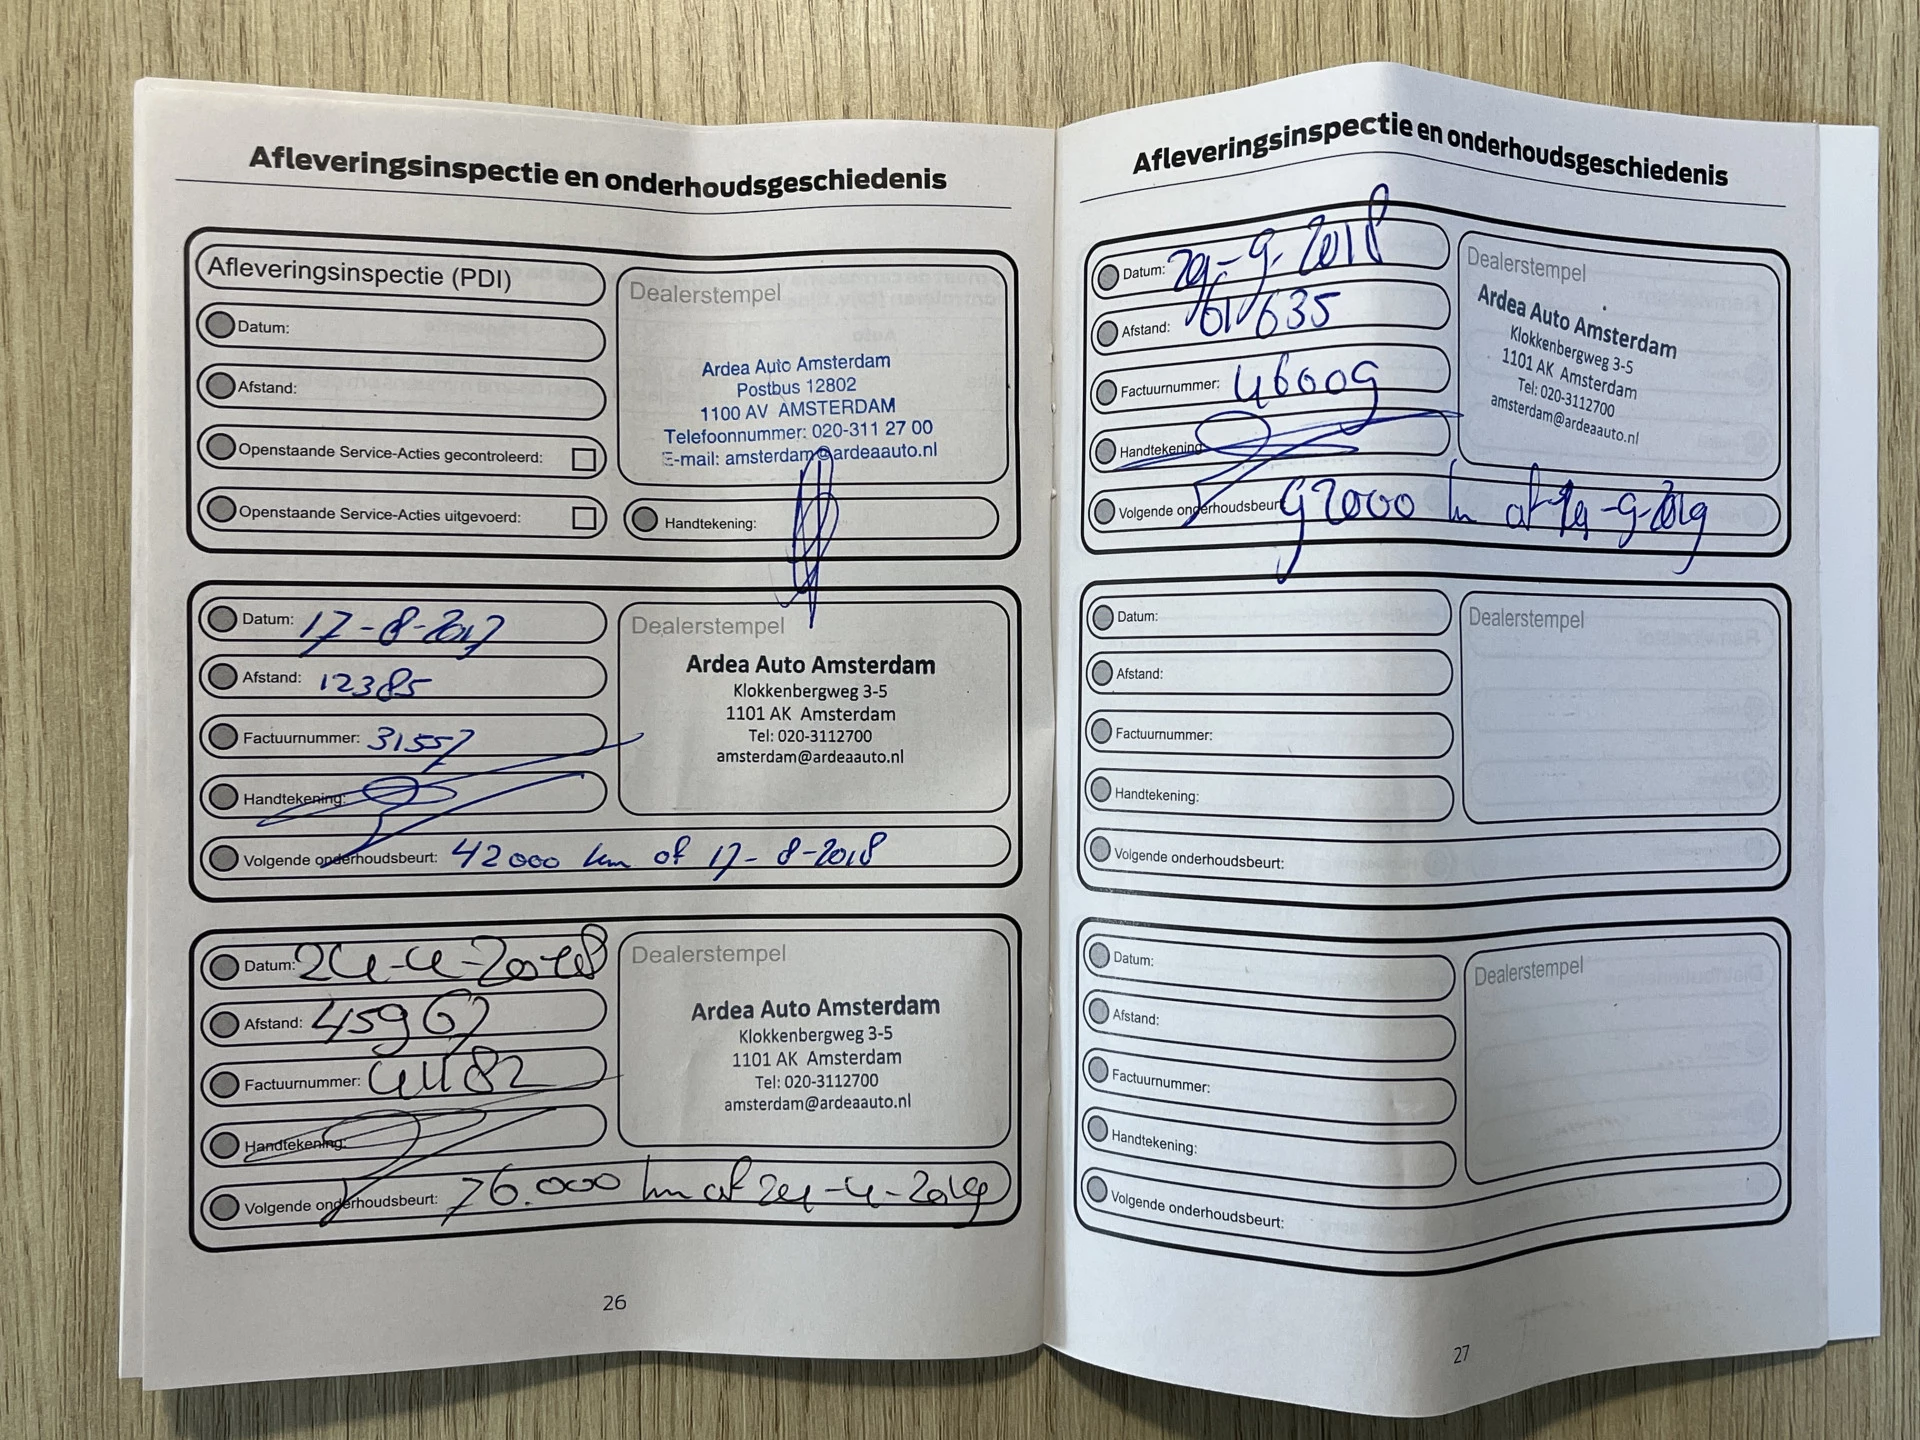 Afleveringsinspectie en onderhoudsgeschiedenis
Afleveringsinspectie (PDI)
Datum:
Afstand:
Openstaande Service-Acties gecontroleerd:
Openstaande Service-Acties uitgevoerd:
Dealerstempel
Ardea Auto Amsterdam
Postbus 12802
1100 AV AMSTERDAM
Telefoonnummer: 020-311 27 00
E-mail: amsterdam@ardeaauto.nl
Handtekening:
Datum: 17-8-2017
Afstand: 12385
Factuurnummer: 31557
Handtekening:
Dealerstempel
Ardea Auto Amsterdam
Klokkenbergweg 3-5
1101 AK Amsterdam
Tel: 020-3112700
amsterdam@ardeaauto.nl
Volgende onderhoudsbeurt: 42000 km of 17-8-2018
Datum: 24-4-2018
Afstand: 45967
Factuurnummer: 41182
Handtekening:
Dealerstempel
Ardea Auto Amsterdam
Klokkenbergweg 3-5
1101 AK Amsterdam
Tel: 020-3112700
amsterdam@ardeaauto.nl
Volgende onderhoudsbeurt: 76.000 km of 24-4-2019
26
Afleveringsinspectie en onderhoudsgeschiedenis
Datum: 29-9-2018
Afstand: 61635
Factuurnummer: 46009
Handtekening:
Dealerstempel
Ardea Auto Amsterdam
Klokkenbergweg 3-5
1101 AK Amsterdam
Tel: 020-3112700
amsterdam@ardeaauto.nl
Volgende onderhoudsbeurt: 92000 km of 29-9-2019
Datum:
Afstand:
Factuurnummer:
Handtekening:
Dealerstempel
Volgende onderhoudsbeurt:
Datum:
Afstand:
Factuurnummer:
Handtekening:
Dealerstempel
Volgende onderhoudsbeurt:
27